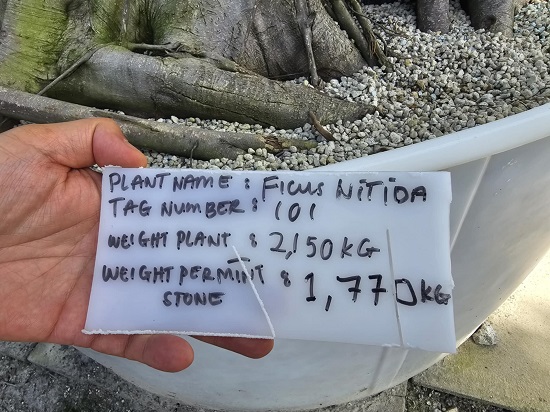 PLANT NAME : FICUS NITIDA
TAG NUMBER : 101
WEIGHT PLANT : 2,150 KG
WEIGHT PERMINT : 1,770 KG
STONE